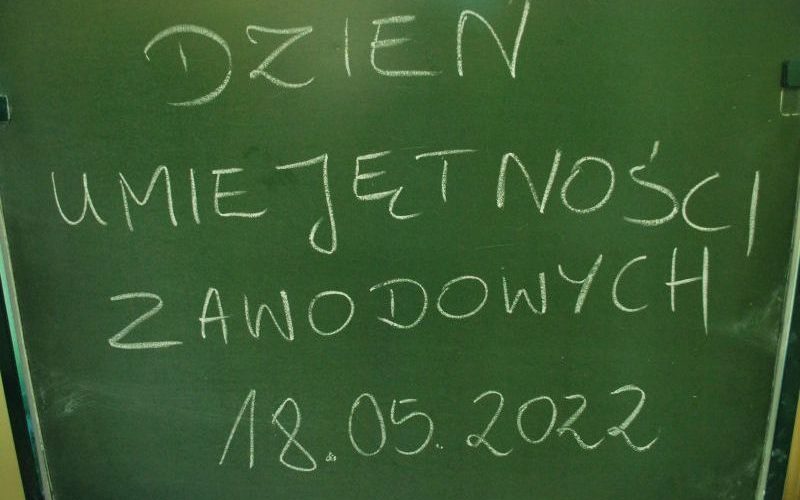 DZIEN
UMIEJĘTNOŚCI
ZAWODOWYCH
18.05.2022